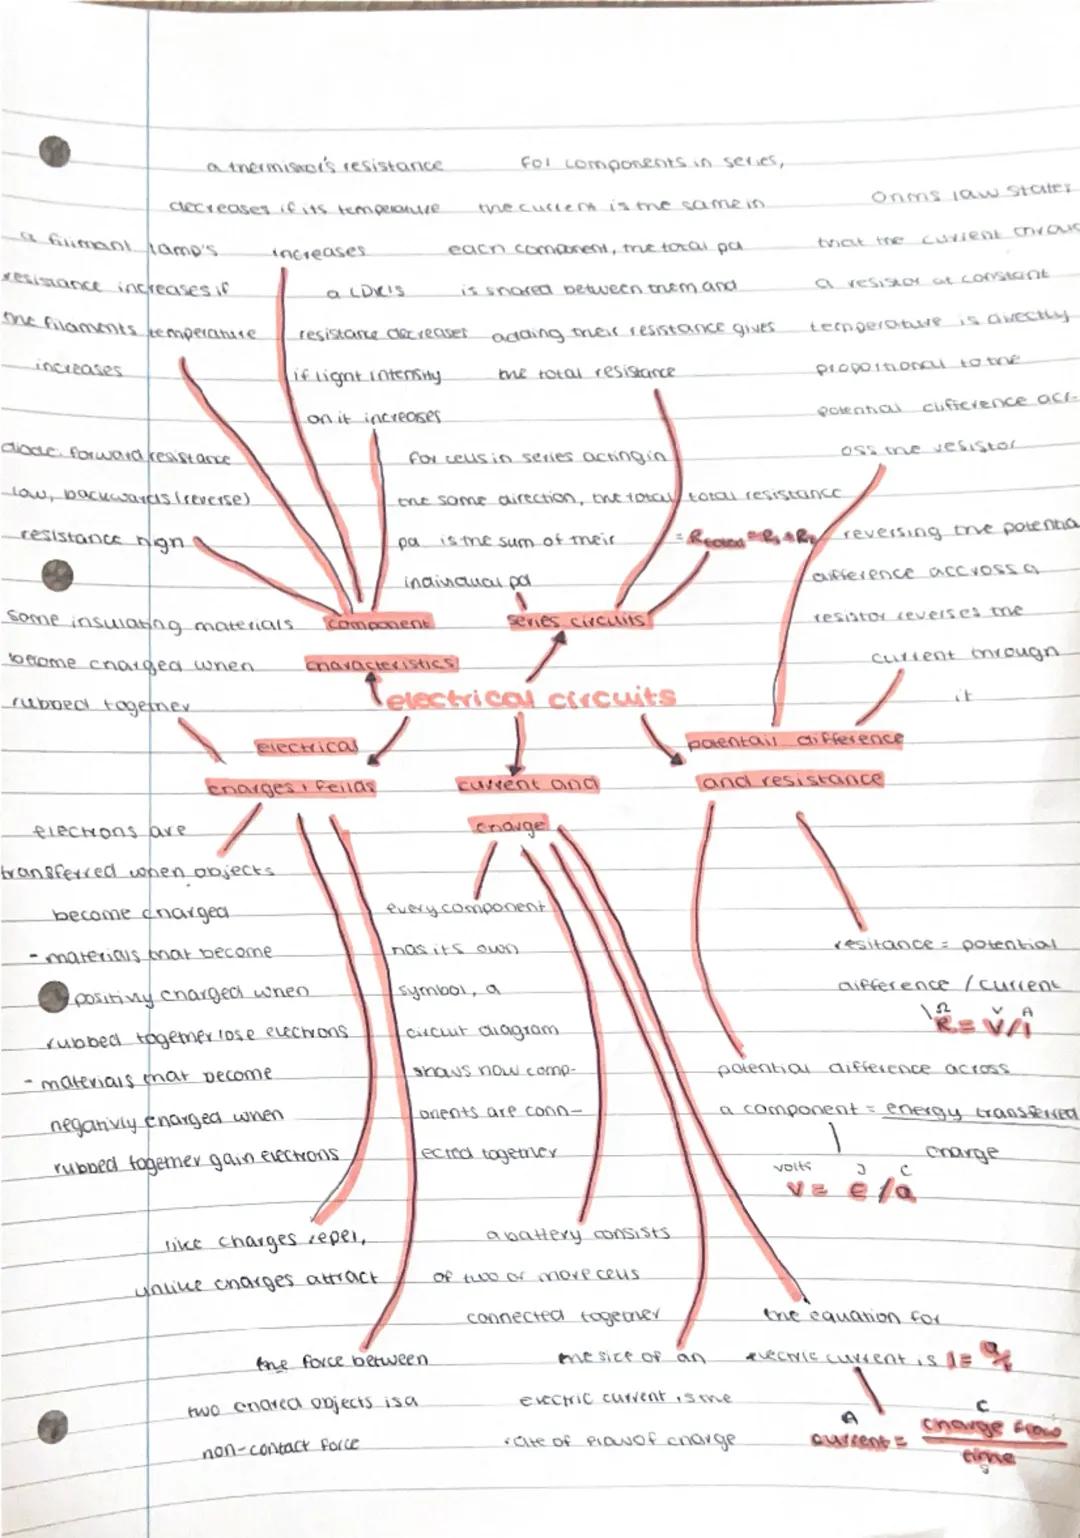 a thermistor's resistance
decreases if its temperature
increases
for components in series,
the current is the same in
each component, the total pd
is shared between them and
adding their resistance gives
the total resistance
Ohms law states
that the current throug
a resistor at constant
temperature is directly
proportional to the
potential difference acr-
oss the resistor
a filimant lamp's
resistance increases if
the filaments temperature
increases
a LDR's
resistance decreases
if light intensity
on it increases
diode: forward resistance
low, backwards (reverse)
resistance high
for cells in series acting in
the same direction, the total
pd is the sum of their
individual pd
total resistance
= Rtotal = R1 + R2
reversing the potentia
difference accross a
resistor reverses the
current through
it
component
characteristics
series circuits
electrical circuits
some insulating materials
become charged when
rubbed together
electrical
charges & feilds
current and
charge
potentail difference
and resistance
electrons are
transferred when objects
become charged
- materials that become
positivly charged when
rubbed together lose electrons
- materials that become
negativly charged when
rubbed together gain electrons
every component
has its own
symbol, a
circuit diagram
shows how comp-
onents are conn-
ected together
resitance = potential
difference / current
Ω V A
R = V/I
potential difference across
a component = energy transferred
charge
volts J C
V = E/Q
like charges repel,
unlike charges attract
a battery consists
of two or more cells
connected together
the force between
two chared objects is a
non-contact force
the size of an
electric current is the
rate of flow of charge
the equation for
electric current is I = Q/t
A C
current = charge flow
time
s